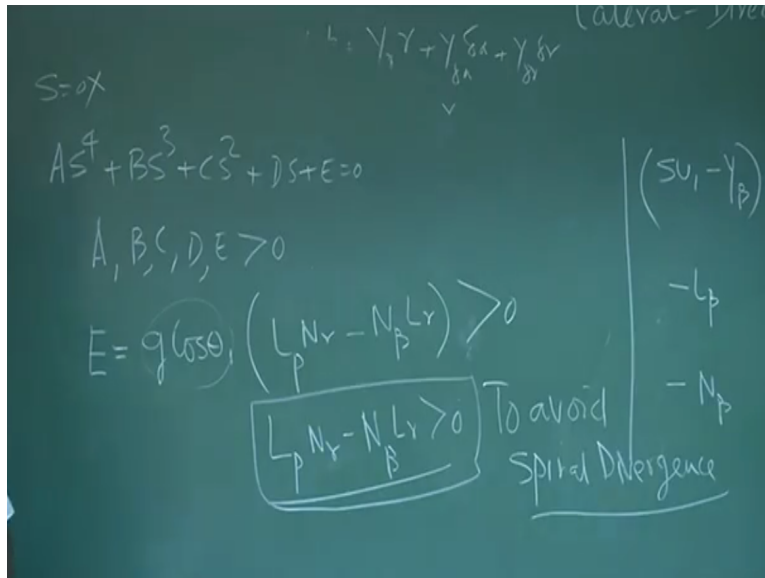 Lateral-Direc
Y_r r + Y_δa δa + Y_δr δr
S=0X
AS⁴+BS³+CS²+DS+E=0
(SU₁-Y_β)
A, B, C, D, E >0
-L_β
E= gCosθ₁ (L_β N_r - N_β L_r) >0
-N_β
L_β N_r - N_β L_r >0 To avoid
Spiral Divergence